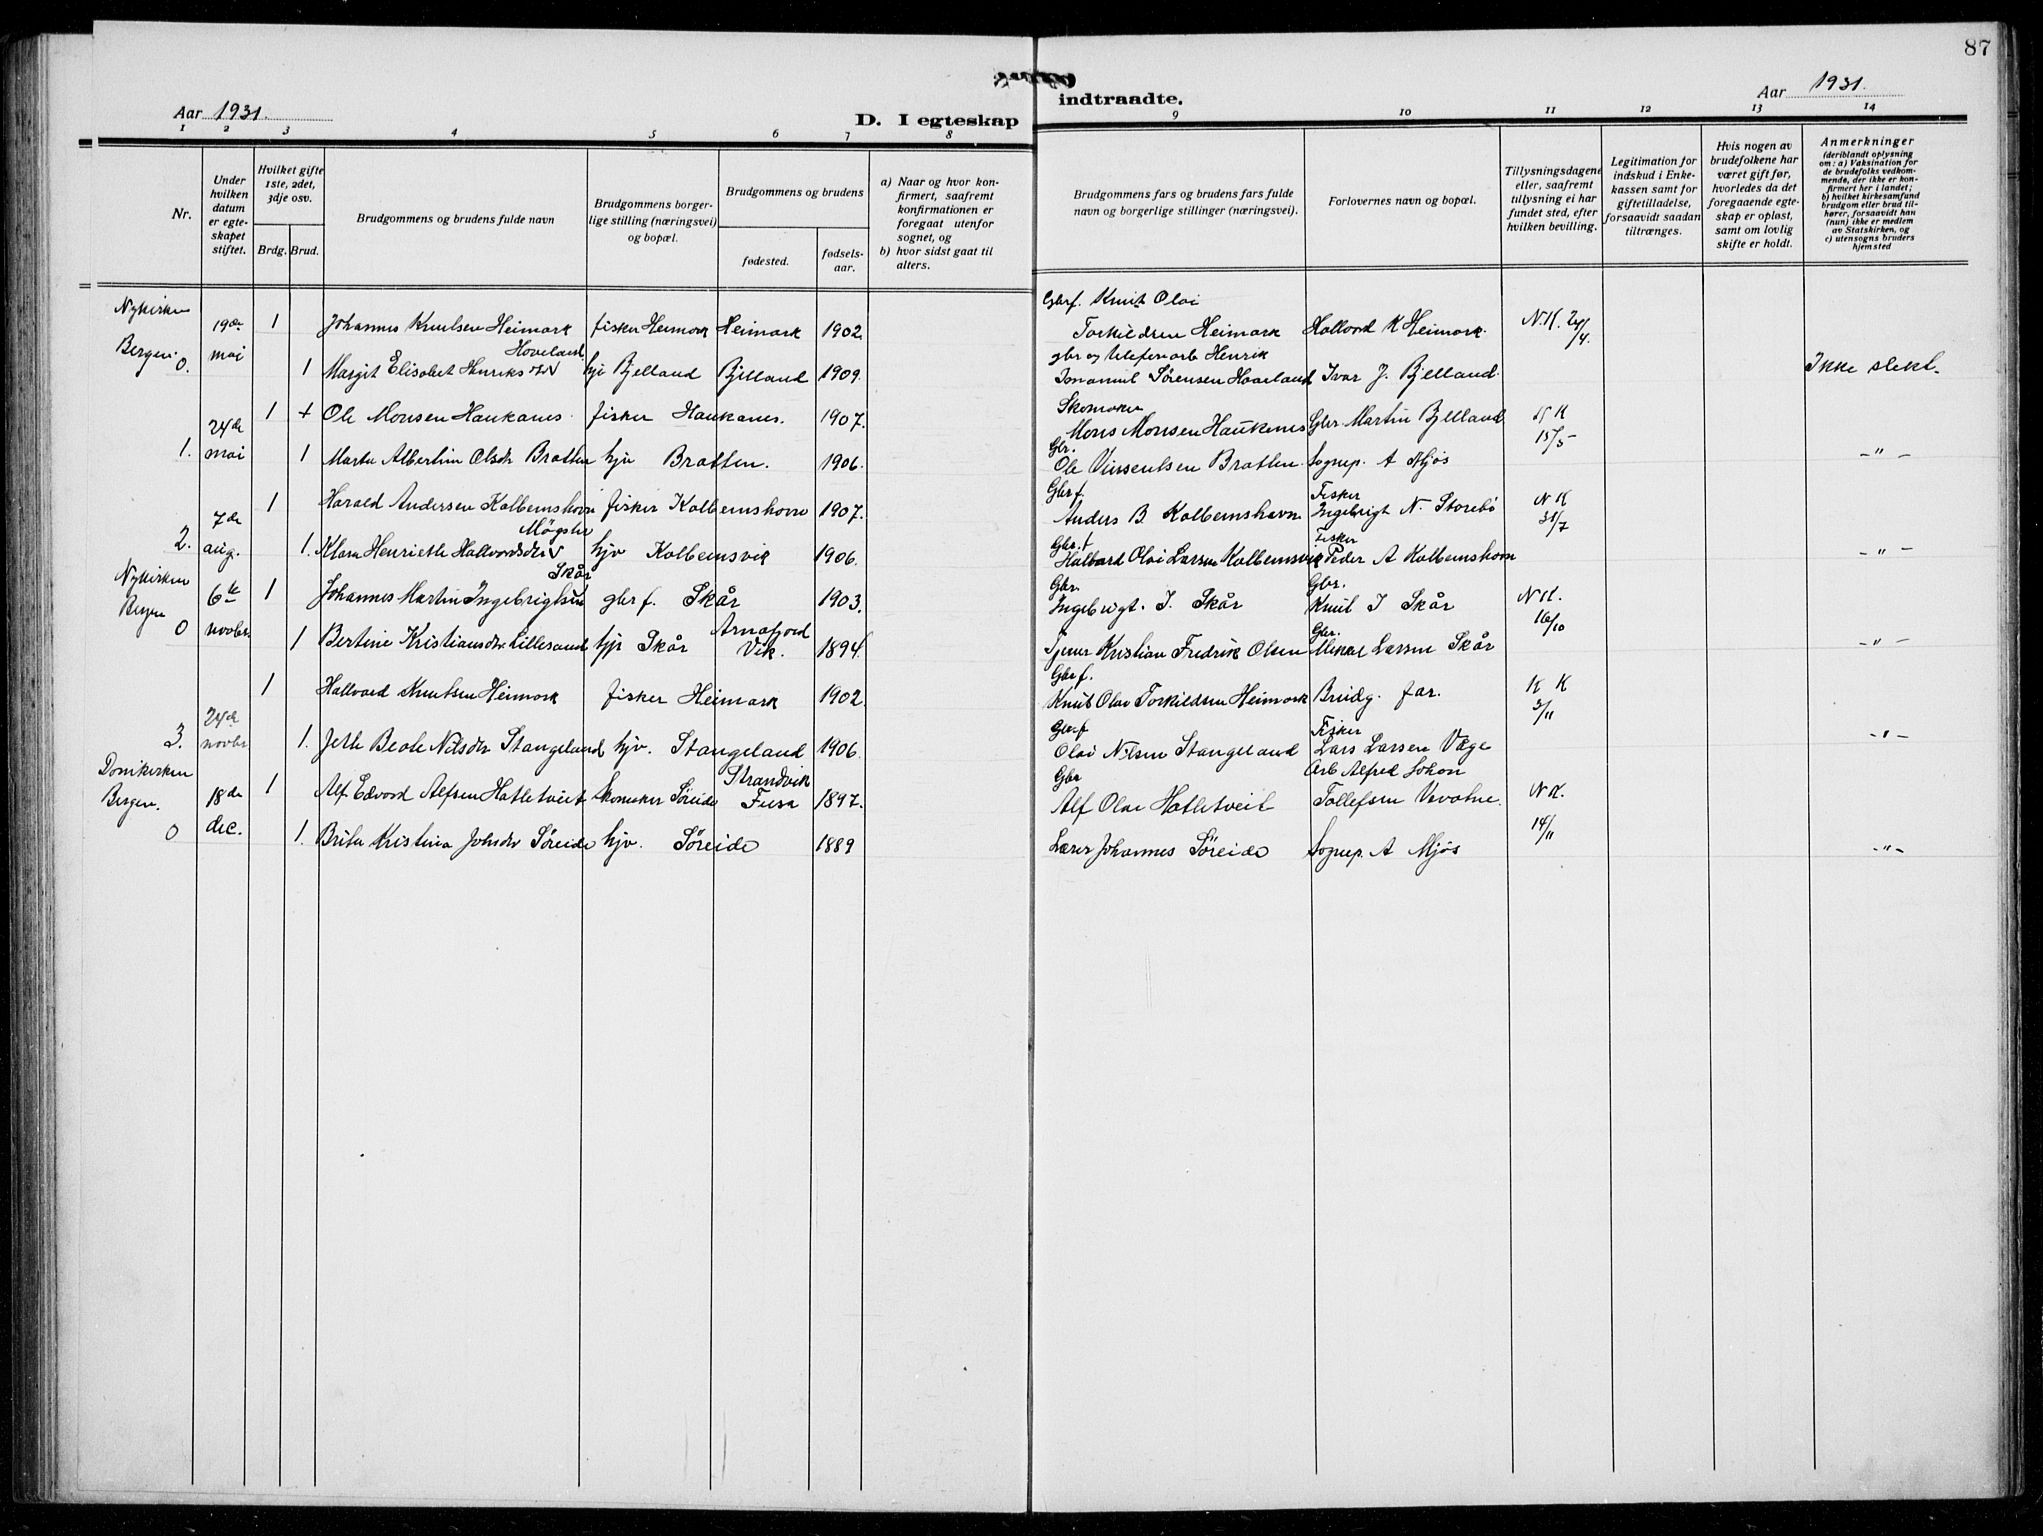 87
Aar 1931.
D. I egteskap
indtraadte.
Aar 1931.
1 2 3 4 5 6 7 8 9 10 11 12 13 14
Nr.
Under hvilken datum er egte-skapet stiftet.
Hvilket gifte 1ste, 2det, 3dje osv.
Brdg. Brud.
Brudgommens og brudens fulde navn
Brudgommens borger-lige stilling (næringsvei) og bopæl.
Brudgommens og brudens
fødested.
fødsels-aar.
a) Naar og hvor kon-firmert, saafremt konfirmationen er foregaat utenfor sognet, og
b) hvor sidst gaat til alters.
Brudgommens fars og brudens fars fulde navn og borgerlige stillinger (næringsvei).
Forlovernes navn og bopæl.
Tillysningsdagene eller, saafremt tillysning ei har fundet sted, efter hvilken bevilling.
Legitimation for indskud i Enke-kassen samt for giftetilladelse, forsaavidt saadan tiltrænges.
Hvis nogen av brudefolkene har været gift før, hvorledes da det foregaaende egte-skap er opløst, samt om lovlig skifte er holdt.
Anmerkninger
(deriblandt oplysning om: a) Vaksination for de brudefolks vedkom-mende, der ikke er kon-firmert her i landet; b) hvilket kirkesamfund brudgom eller brud til-hører, forsaavidt han (hun) ikke er medlem av Statskirken, og c) utensogns bruders hjemsted
Nykirken Gbrf. Knut Olai
19de 1 Johannes Knutsen Heimark fisker Heimark Heimark 1902. Torkildsen Heimark Hallvard K Heimark. N.K. 24/4.
Bergen. mai Hoveland gbr og telefonarb Henrik
0. 1 Margit Elisabet Henriksdtr hjv Bjelland Bjelland 1909. Imanuel Sørensen Hoveland Ivar J. Bjelland. Ikke slekt.
Skomaker
24de 1 + Ole Monsen Haukanes. fisker Haukanes. 1907. Mons Monsen Haukenes Gbr. Martin Bjelland K
Gbr. 15/5
1. mai 1 Marta Albertine Olsdtr Bratten hjv Bratten. 1906. Ole Vinsentsen Bratten. Sognep. A Mjøs -"-
Gbrf. Fisker
7de 1 Harald Andersen Kolbenshavn fisker Kolbenshavn 1907. Anders B. Kolbenshavn Ingebrigt N. Storebø N K 31/7
Møgster Gbr. + Fisker
2. aug. 1. Klara Henriette Hallvardsdtr hjv Kolbeinsvik 1906. Halvard Olai Larsen Kolbeinsvik Peder A Kolbenshavn -"-
Nykirken Skår Gbr. Gbr.
Bergen 6te 1 Johannes Martin Ingebrigtsen gbrf. Skår 1903. Ingebrigt. J. Skår Knut J Skår N.K. 16/10
Arnafjord Gbr.
0 novbr 1 Bertine Kristiansdtr Lillesand hjv Skår Vik. 1894. Tjener Kristian Fredrik Olsen Mikal Larsen Skår -"-
Gbrf.
1 Hallvard Knutsen Heimark fisker Heimark 1902. Knut Olai Torkildsen Heimark Brudg. far. K K 3/11
24de Gbrf Fisker
3. novbr 1. Jette Beate Nilsdtr Stangeland hjv. Stangeland 1906. Olai Nilsen Stangeland Lars Larsen Våge -"-
Domkirken Strandvik Gbr Arb Alfred Johan
Bergen. 18de 1 Alf Edvard Alfsen Hatletveit Skomaker Søreide Fusa 1897. Alf Olai Hatletveit Tollefsen N K. 14/11
0 dec. 1. Brita Kristina Johsdtr Søreide hjv. Søreide 1889 Lærer Johannes Søreide Sognep. A Mjøs -"-